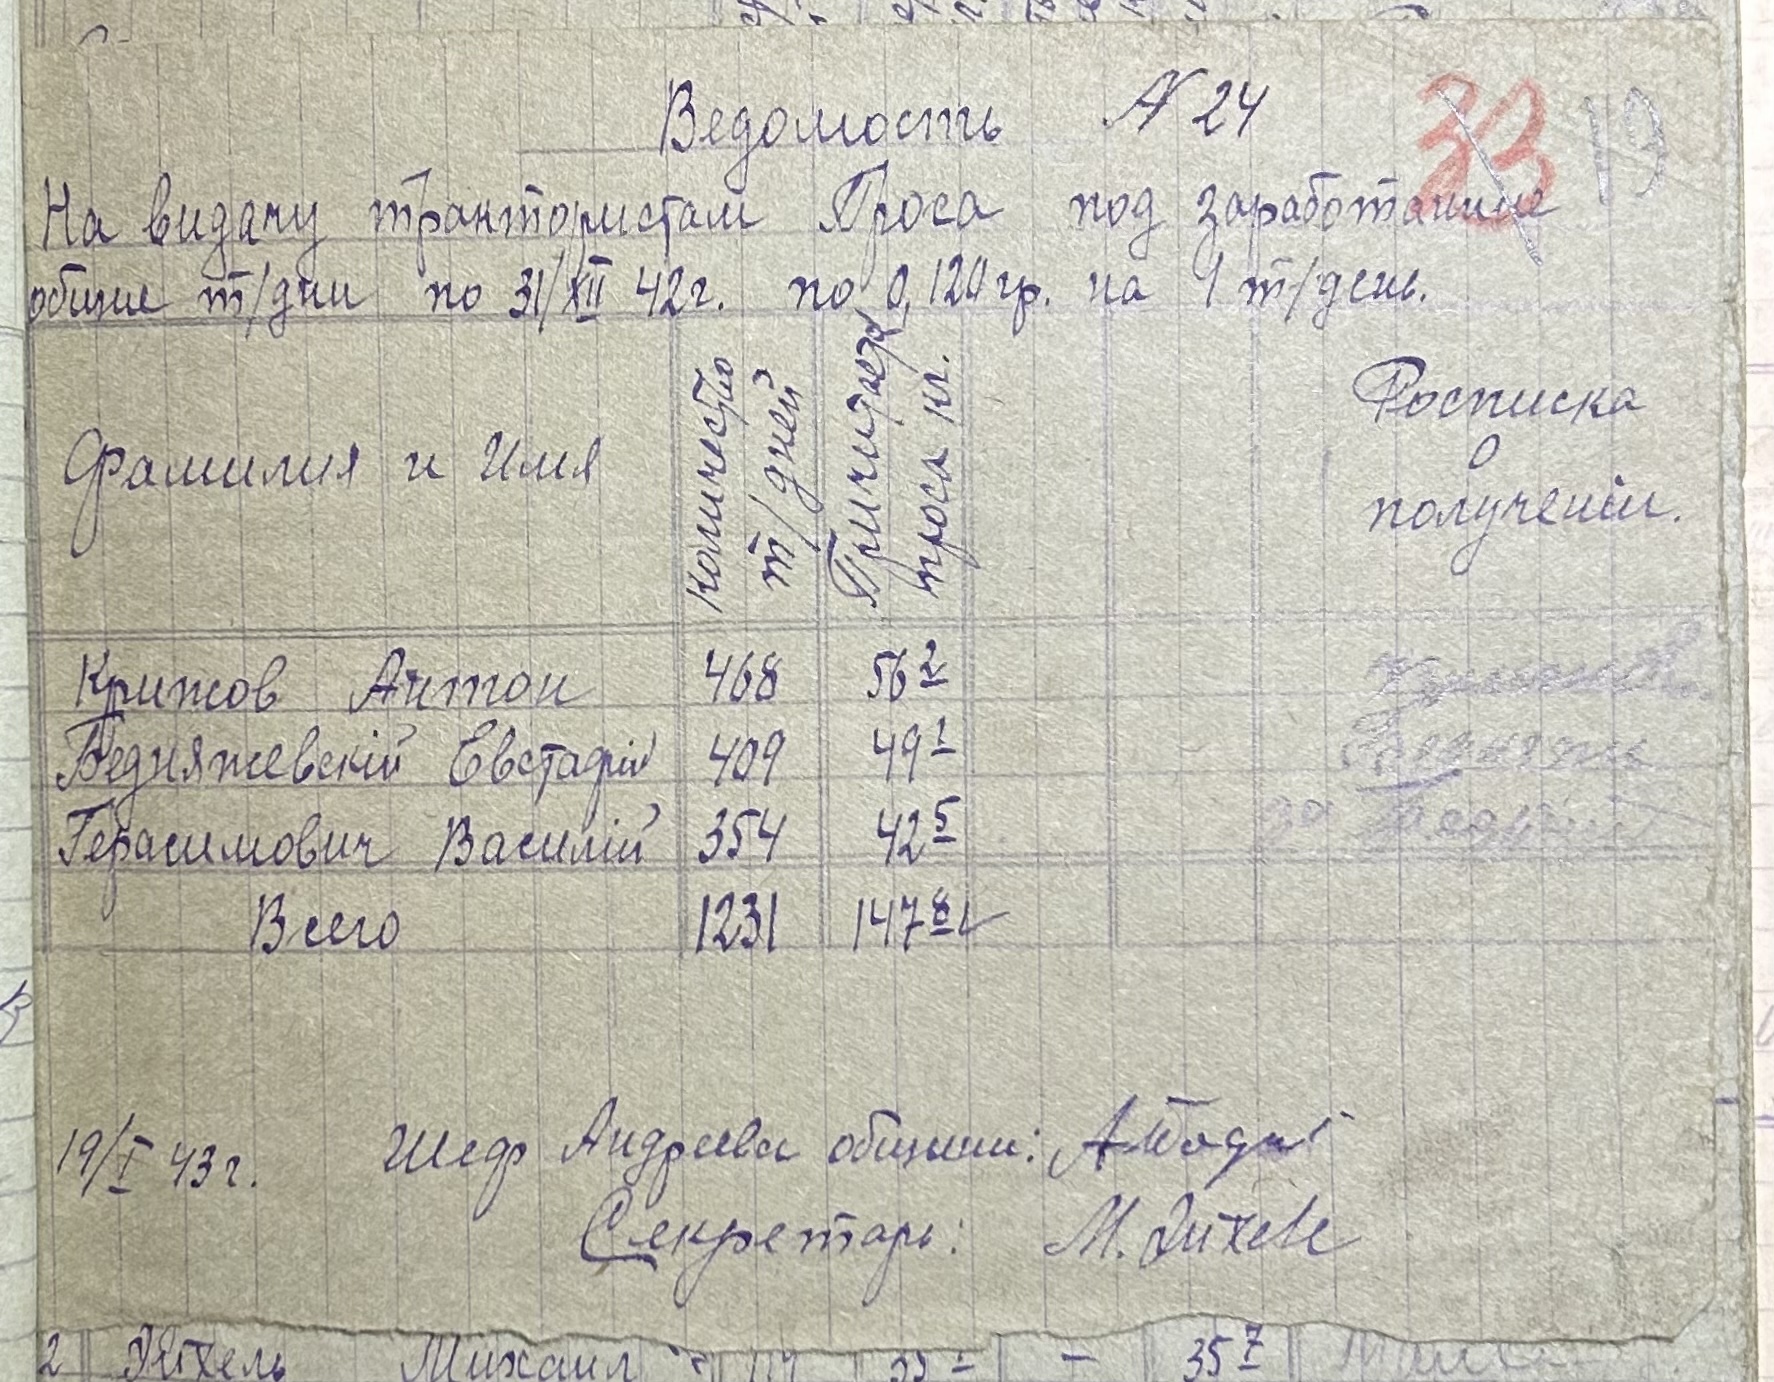 Ведомость № 24
33 19
На видачу трактористам Проса под заработанние
общие т/дни по 31/XII 42г. по 0,120 гр. на 1 т/день.
Фамилия и Имя
количество т/дней
Причитается проса кг.
Росписка
о
полученіи.
Крижов Антон 468 56 2
Бедняжевскій Евстафій 409 49 1
Герасимович Василій 354 42 5
за
Всего 1231 147 8
19/I 43 г. Шеф Андреева общини:
Секретарь: М. Эйхель
2 Эйхель Михаил - 35 7